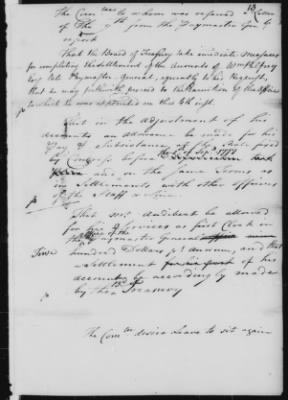 The Com^tee to whom was referred a Letter
of the 9th from the Paymaster Gen^l
report
That the Board of Treasury take immediate measures
for completing the settlement of the Accounts of W^m Palfrey
Esq^r late Paymaster General,
that he may proceed to the execution of the Office
to which he was appointed on the 4th inst.
That in the adjustment of his
accounts an allowance be made for
Pay & Subsistence
by Congress before 1778
and on the Same Terms as
in Settlements with other officers
of the Staff
That Mr. be allowed
for his Services as first Clerk in
the office of the Paymaster general
hundred Dollars and that
a Settlement of his
accounts be accordingly made
by the Treasury
The Com^tee desire Leave to sit again